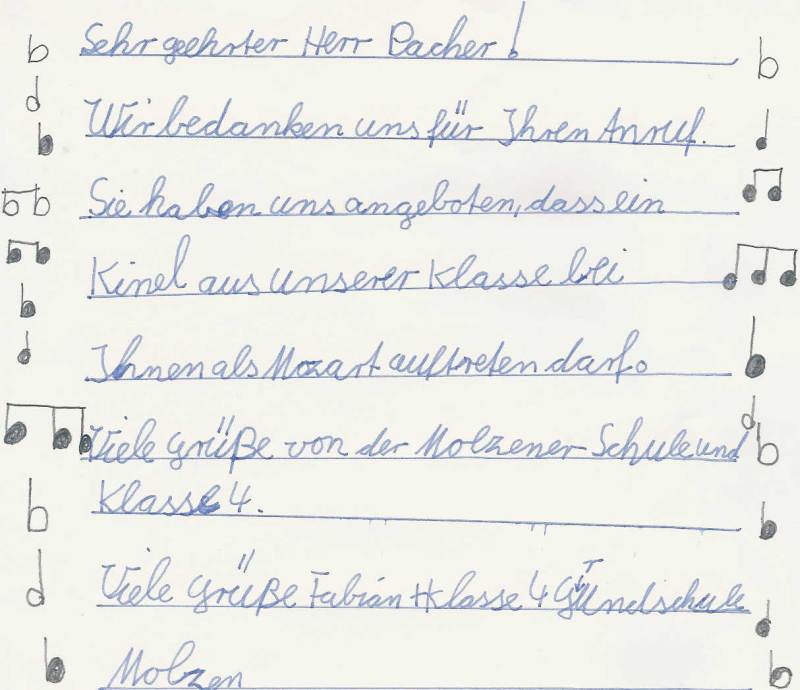 Sehr geehrter Herr Pacher!
Wir bedanken uns für Ihren Anruf.
Sie haben uns angeboten, dass ein
Kind aus unserer Klasse bei
Ihnen als Mozart auftreten darf.
Viele Grüße von der Molzener Schule und
Klasse 4.
Viele Grüße Fabian + Klasse 4 Grundschule
Molzen